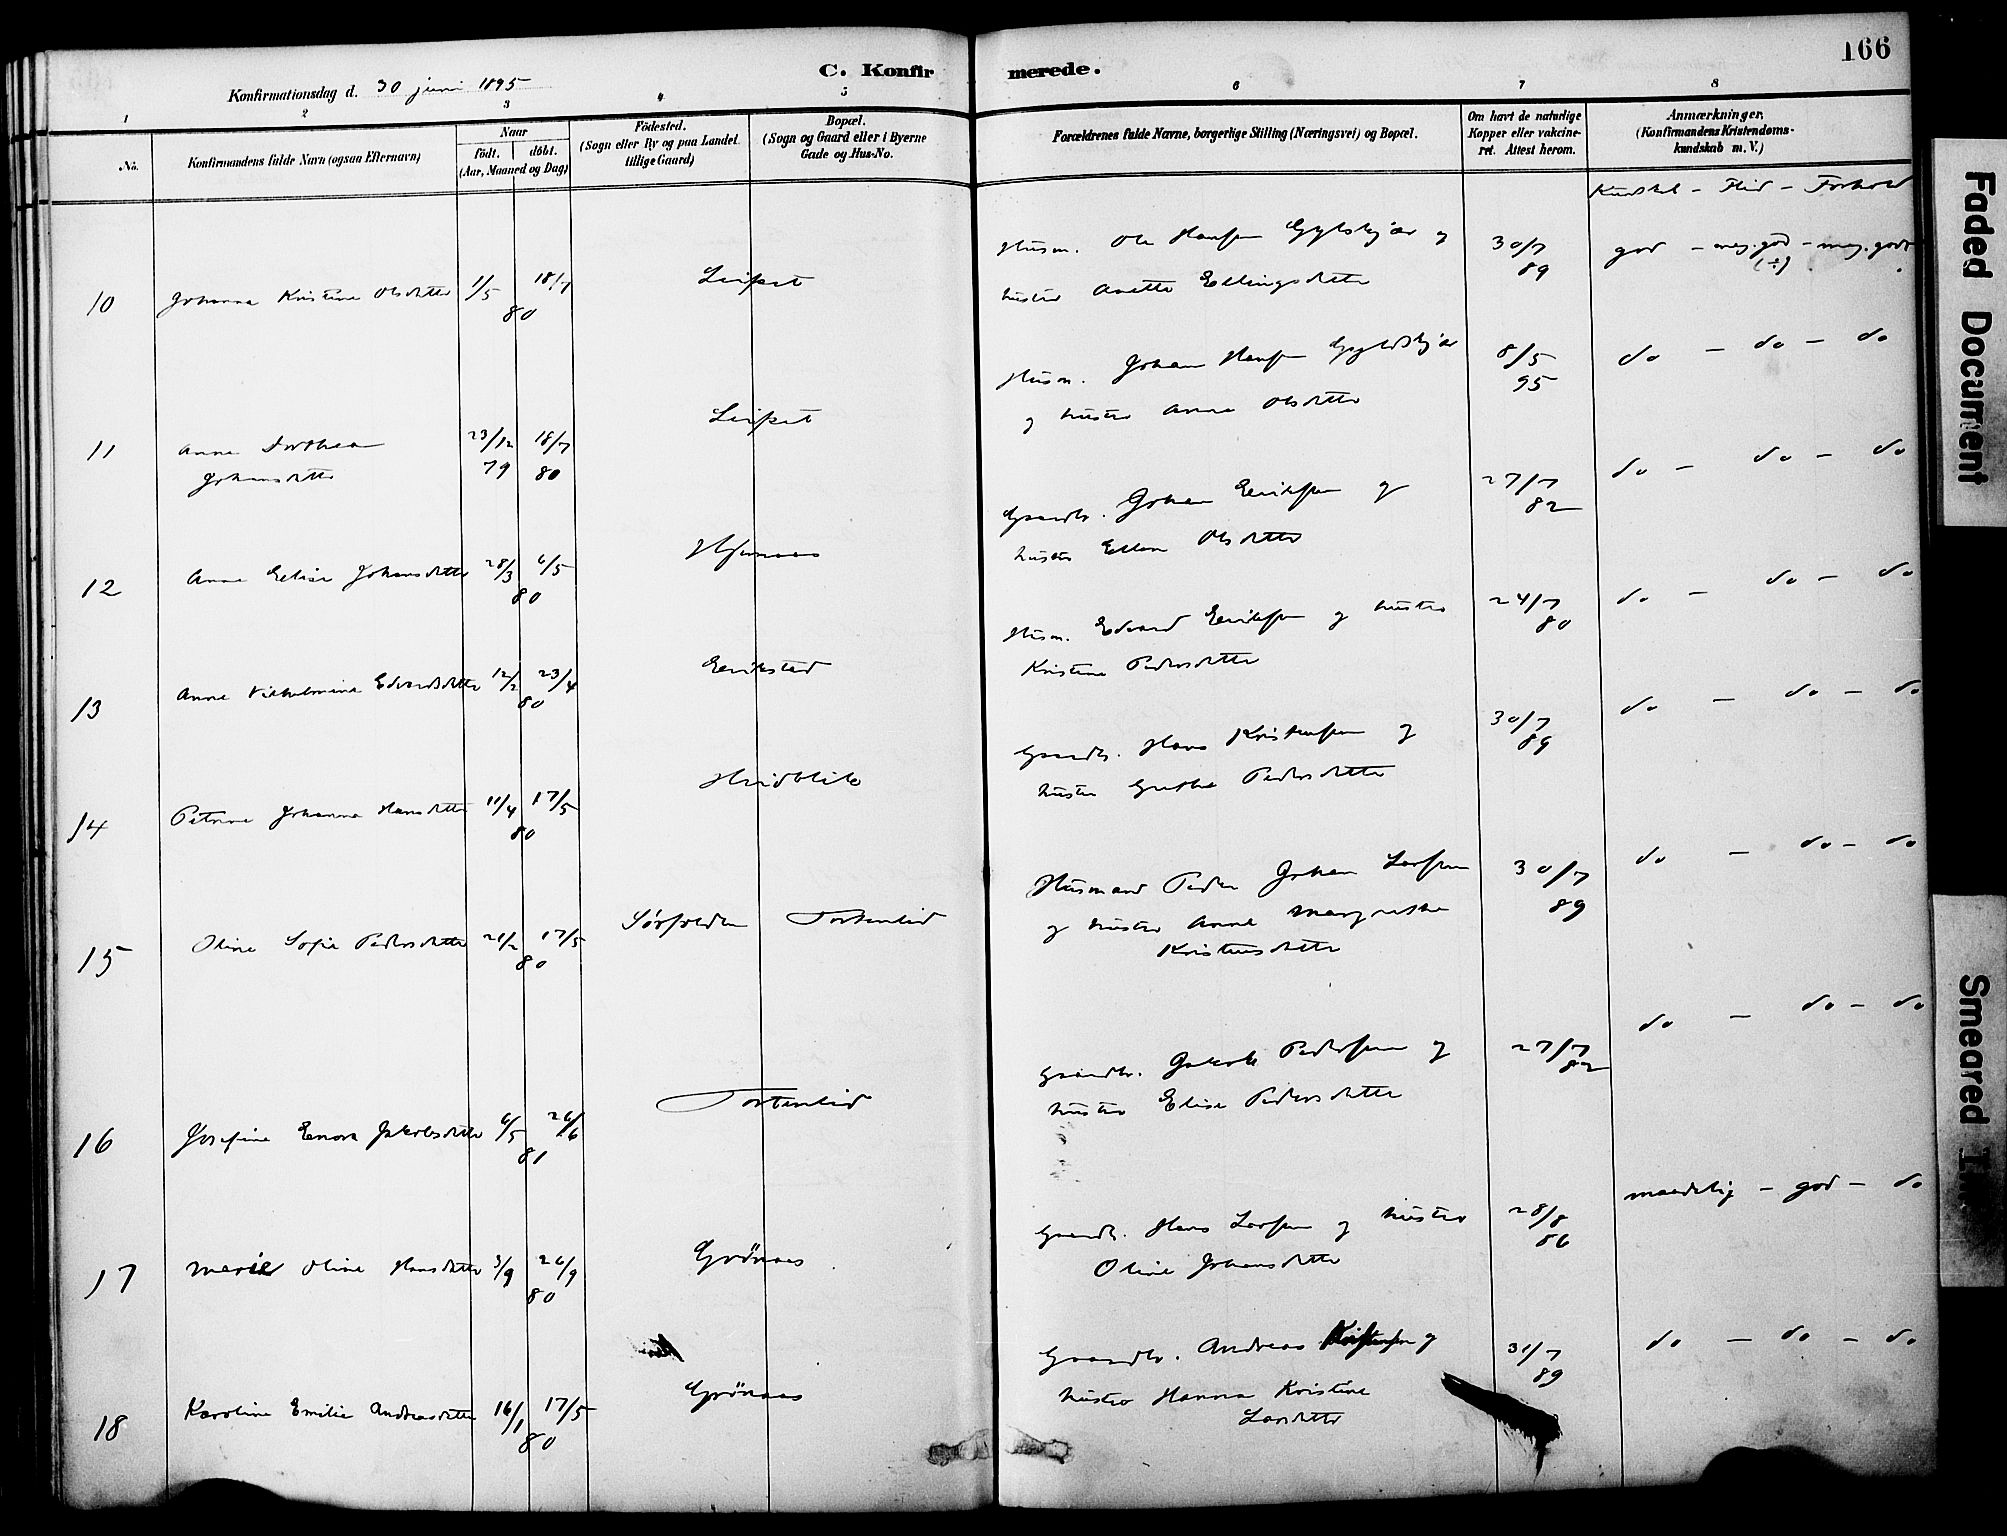 166
C. Konfirmerede.
Konfirmationsdag d. 30 juni 1895
1 2 3 4 5 6 7 8
No.
Konfirmandens fulde Navn (ogsaa Efternavn)
Naar
födt. döbt.
(Aar, Maaned og Dag)
Födested.
(Sogn eller By og paa Landet
tillige Gaard)
Bopæl.
(Sogn og Gaard eller i Byerne
Gade og Hus-No.
Forældrenes fulde Navne, borgerlige Stilling (Næringsvei) og Bopæl.
Om havt de naturlige
Kopper eller vakcine-
ret. Attest herom.
Anmærkninger,
(Konfirmandens Kristendoms-
kundskab m. V.)
Kundskab – Flid – Forhold
10 Johanna Kristine Olsdatter 1/5 18/7 80 Leifset
Husm. Ole Hansen og
hustru Anette Ellingsdatter
30/7 89
god – meg. god – meg. godt
(÷)
11 Anne Dorthea
Johansdatter
23/12 79 18/7 80 Leifset
Husm. Johan Hansen
og hustru Anna Olsdatter
8/5 95
do – do – do
12 Anna Elise Johansdatter 28/3 6/5 80
Gaardb. Johan Eriksen og
hustru Ellen Olsdatter
27/7 82
do – do – do
13 Anne Vilhelmine Edvardsdatter 12/2 23/4 80 Erikstad
Husm. Edvard Eriksen og hustru
Kristine Pedersdatter
24/7 80
do – do – do
14 Petrine Johanna Hansdatter 11/4 17/5 80 Hvidblik
Gaardb. Hans Kristensen og
hustru Grethe Pedersdatter
30/7 89
do – do – do
15 Oline Sofie Pedersdatter 21/2 17/5 80 Sørfolden Tortenlid
Husmand Peder Johan Larsen
og hustru Anne Margrethe
Kristensdatter
30/7 89
do – do – do
16 Josefine Enora Jakobsdatter 6/5 26/6 81 Tortenlid
Gaardb. Jakob Pedersen og
hustru Elise Pedersdatter
27/7 82
do – do – do
17 Marie Oline Hansdatter 3/9 26/9 80 Grönaas
Gaardb. Hans Larsen og hustru
Oline Johansdatter
28/8 86
maadelig – god – do
18 Karoline Emilie Andreasdatter 16/1 17/5 80 Grönaas
Gaardb. Andreas Kristensen og
hustru Hanna Kristine
Larsdatter
31/7 89
do – do – do
Faded Document
Smeared Ink